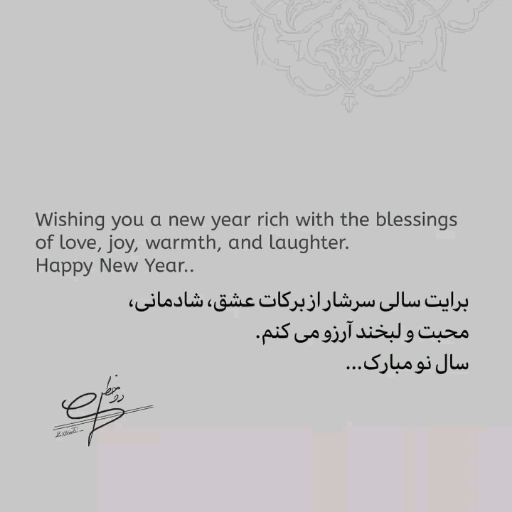 Wishing you a new year rich with the blessings
of love, joy, warmth, and laughter.
Happy New Year..
برایت سالی سرشار از برکات عشق، شادمانی،
محبت و لبخند آرزو می کنم.
سال نو مبارک...